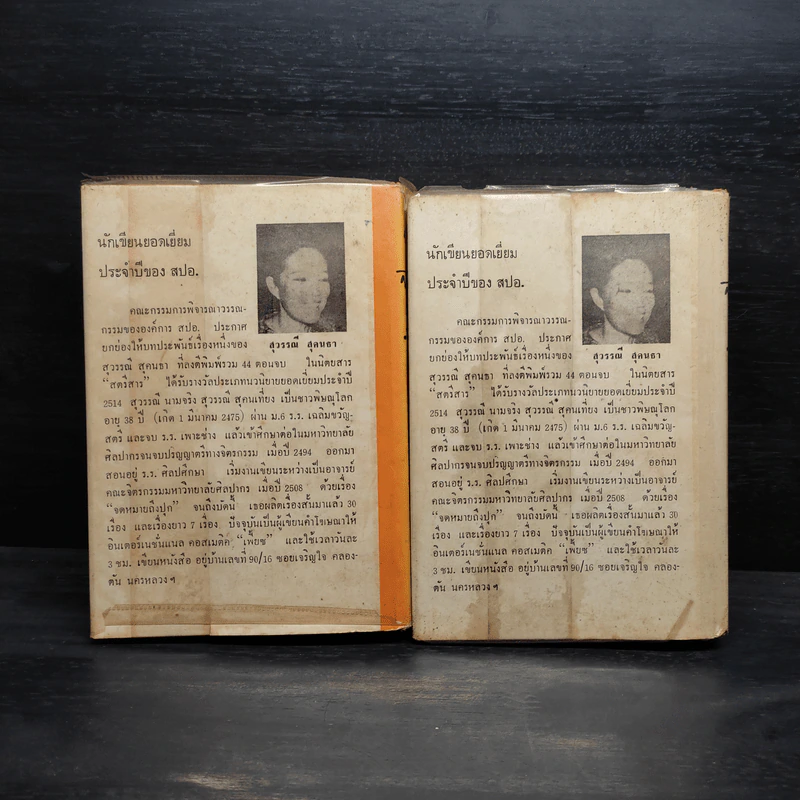 นักเขียนยอดเยี่ยม
ประจำปีของ สปอ.
คณะกรรมการพิจารณาวรรณ-
กรรมขององค์การ สปอ. ประกาศ
ยกย่องให้บทประพันธ์เรื่องหนึ่งของ
สุวรรณี สุคนธา
สุวรรณี สุคนธา ที่ลงตีพิมพ์รวม 44 ตอนจบ ในนิตยสาร
“สตรีสาร” ได้รับรางวัลประเภทนวนิยายยอดเยี่ยมประจำปี
2514 สุวรรณี นามจริง สุวรรณี สุคนเที่ยง เป็นชาวพิษณุโลก
อายุ 38 ปี (เกิด 1 มีนาคม 2475) ผ่าน ม.6 ร.ร. เฉลิมขวัญ-
สตรี และจบ ร.ร. เพาะช่าง แล้วเข้าศึกษาต่อในมหาวิทยาลัย
ศิลปากรจนจบปริญญาตรีทางจิตรกรรม เมื่อปี 2494 ออกมา
สอนอยู่ ร.ร. ศิลปศึกษา เริ่มงานเขียนระหว่างเป็นอาจารย์
คณะจิตรกรรมมหาวิทยาลัยศิลปากร เมื่อปี 2508 ด้วยเรื่อง
“จดหมายถึงปุก” จนถึงบัดนี้ เธอผลิตเรื่องสั้นมาแล้ว 30
เรื่อง และเรื่องยาว 7 เรื่อง ปัจจุบันเป็นผู้เขียนคำโฆษณาให้
อินเตอร์เนชั่นแนล คอสเมติค “เพี้ยซ” และใช้เวลาวันละ
3 ชม. เขียนหนังสือ อยู่บ้านเลขที่ 90/16 ซอยเจริญใจ คลอง-
ตัน นครหลวง ฯ
นักเขียนยอดเยี่ยม
ประจำปีของ สปอ.
คณะกรรมการพิจารณาวรรณ-
กรรมขององค์การ สปอ. ประกาศ
ยกย่องให้บทประพันธ์เรื่องหนึ่งของ
สุวรรณี สุคนธา
สุวรรณี สุคนธา ที่ลงตีพิมพ์รวม 44 ตอนจบ ในนิตยสาร
“สตรีสาร” ได้รับรางวัลประเภทนวนิยายยอดเยี่ยมประจำปี
2514 สุวรรณี นามจริง สุวรรณี สุคนเที่ยง เป็นชาวพิษณุโลก
อายุ 38 ปี (เกิด 1 มีนาคม 2475) ผ่าน ม.6 ร.ร. เฉลิมขวัญ-
สตรี และจบ ร.ร. เพาะช่าง แล้วเข้าศึกษาต่อในมหาวิทยาลัย
ศิลปากรจนจบปริญญาตรีทางจิตรกรรม เมื่อปี 2494 ออกมา
สอนอยู่ ร.ร. ศิลปศึกษา เริ่มงานเขียนระหว่างเป็นอาจารย์
คณะจิตรกรรมมหาวิทยาลัยศิลปากร เมื่อปี 2508 ด้วยเรื่อง
“จดหมายถึงปุก” จนถึงบัดนี้ เธอผลิตเรื่องสั้นมาแล้ว 30
เรื่อง และเรื่องยาว 7 เรื่อง ปัจจุบันเป็นผู้เขียนคำโฆษณาให้
อินเตอร์เนชั่นแนล คอสเมติค “เพี้ยซ” และใช้เวลาวันละ
3 ชม. เขียนหนังสือ อยู่บ้านเลขที่ 90/16 ซอยเจริญใจ คลอง-
ตัน นครหลวง ฯ